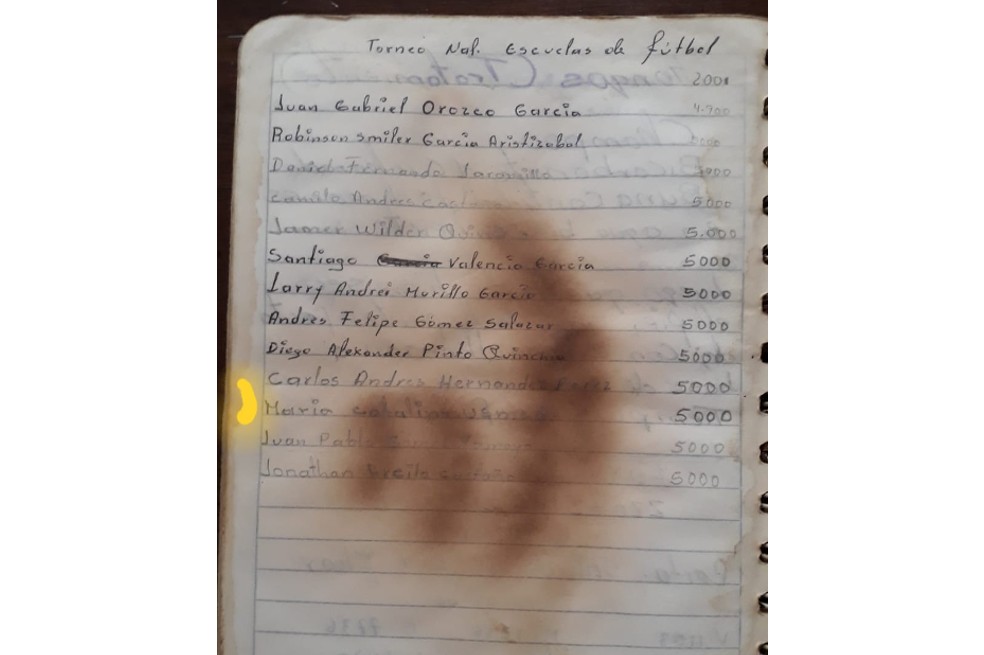 Torneo Nal. Escuelas de fútbol
2001
Juan Gabriel Orozco Garcia 4.900
Robinson Smiler Garcia Aristizabal 5000
Daniel Fernando Jaramillo 5000
Camilo Andres 5000
Jamer Wilder 5.000
Santiago Garcia Valencia Garcia 5000
Larry Andrei Murillo Garcia 5000
Andres Felipe Gómez Salazar 5000
Diego Alexander Pinto Quinchia 5000
Carlos Andres Hernandez Perez 5000
Maria Catalina 5000
Juan Pablo 5000
Jonathan 5000